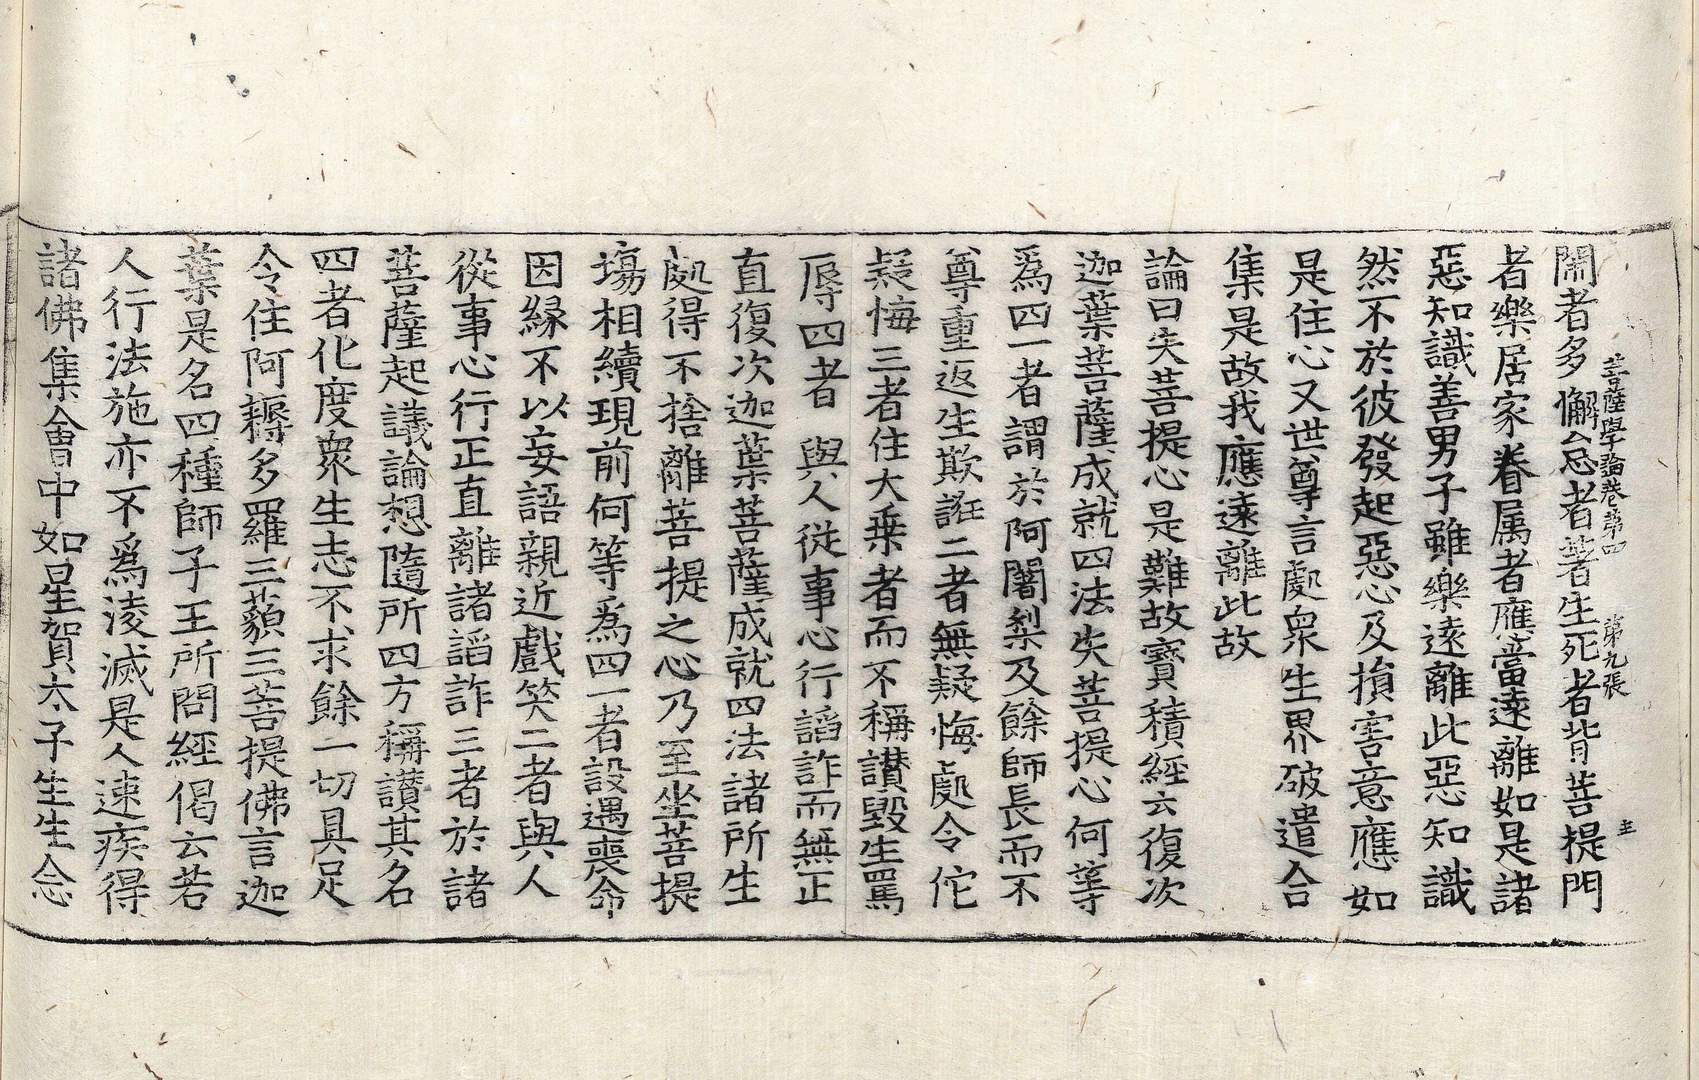 菩薩學論卷第四 第九張
鬧者多懈怠者著生死者背菩提門
者樂居家眷属者應當遠離如是諸
惡知識善男子雖樂遠離此惡知識
然不於彼發起惡心及損害意應如
是住心又世尊言處衆生界破遣合
集是故我應遠離此故
論曰失菩提心是難故寶積經云復次
迦葉菩薩成就四法失菩提心何等
爲四一者謂於阿闍梨及餘師長而不
尊重返生欺誑二者無疑悔處令佗
疑悔三者住大乗者而不稱讃毀生罵
辱四者 與人從事心行諂詐而無正
直復次迦葉菩薩成就四法諸所生
處得不捨離菩提之心乃至坐菩提
塲相續現前何等爲四一者設遇喪命
因縁不以妄語親近戲笑二者與人
從事心行正直離諸諂詐三者於諸
菩薩起議論想隨所四方稱讃其名
四者化度衆生志不求餘一切具足
令住阿耨多羅三藐三菩提佛言迦
葉是名四種師子王所問經偈云若
人行法施亦不爲淩滅是人速疾得
諸佛集會中如星賀太子生生念